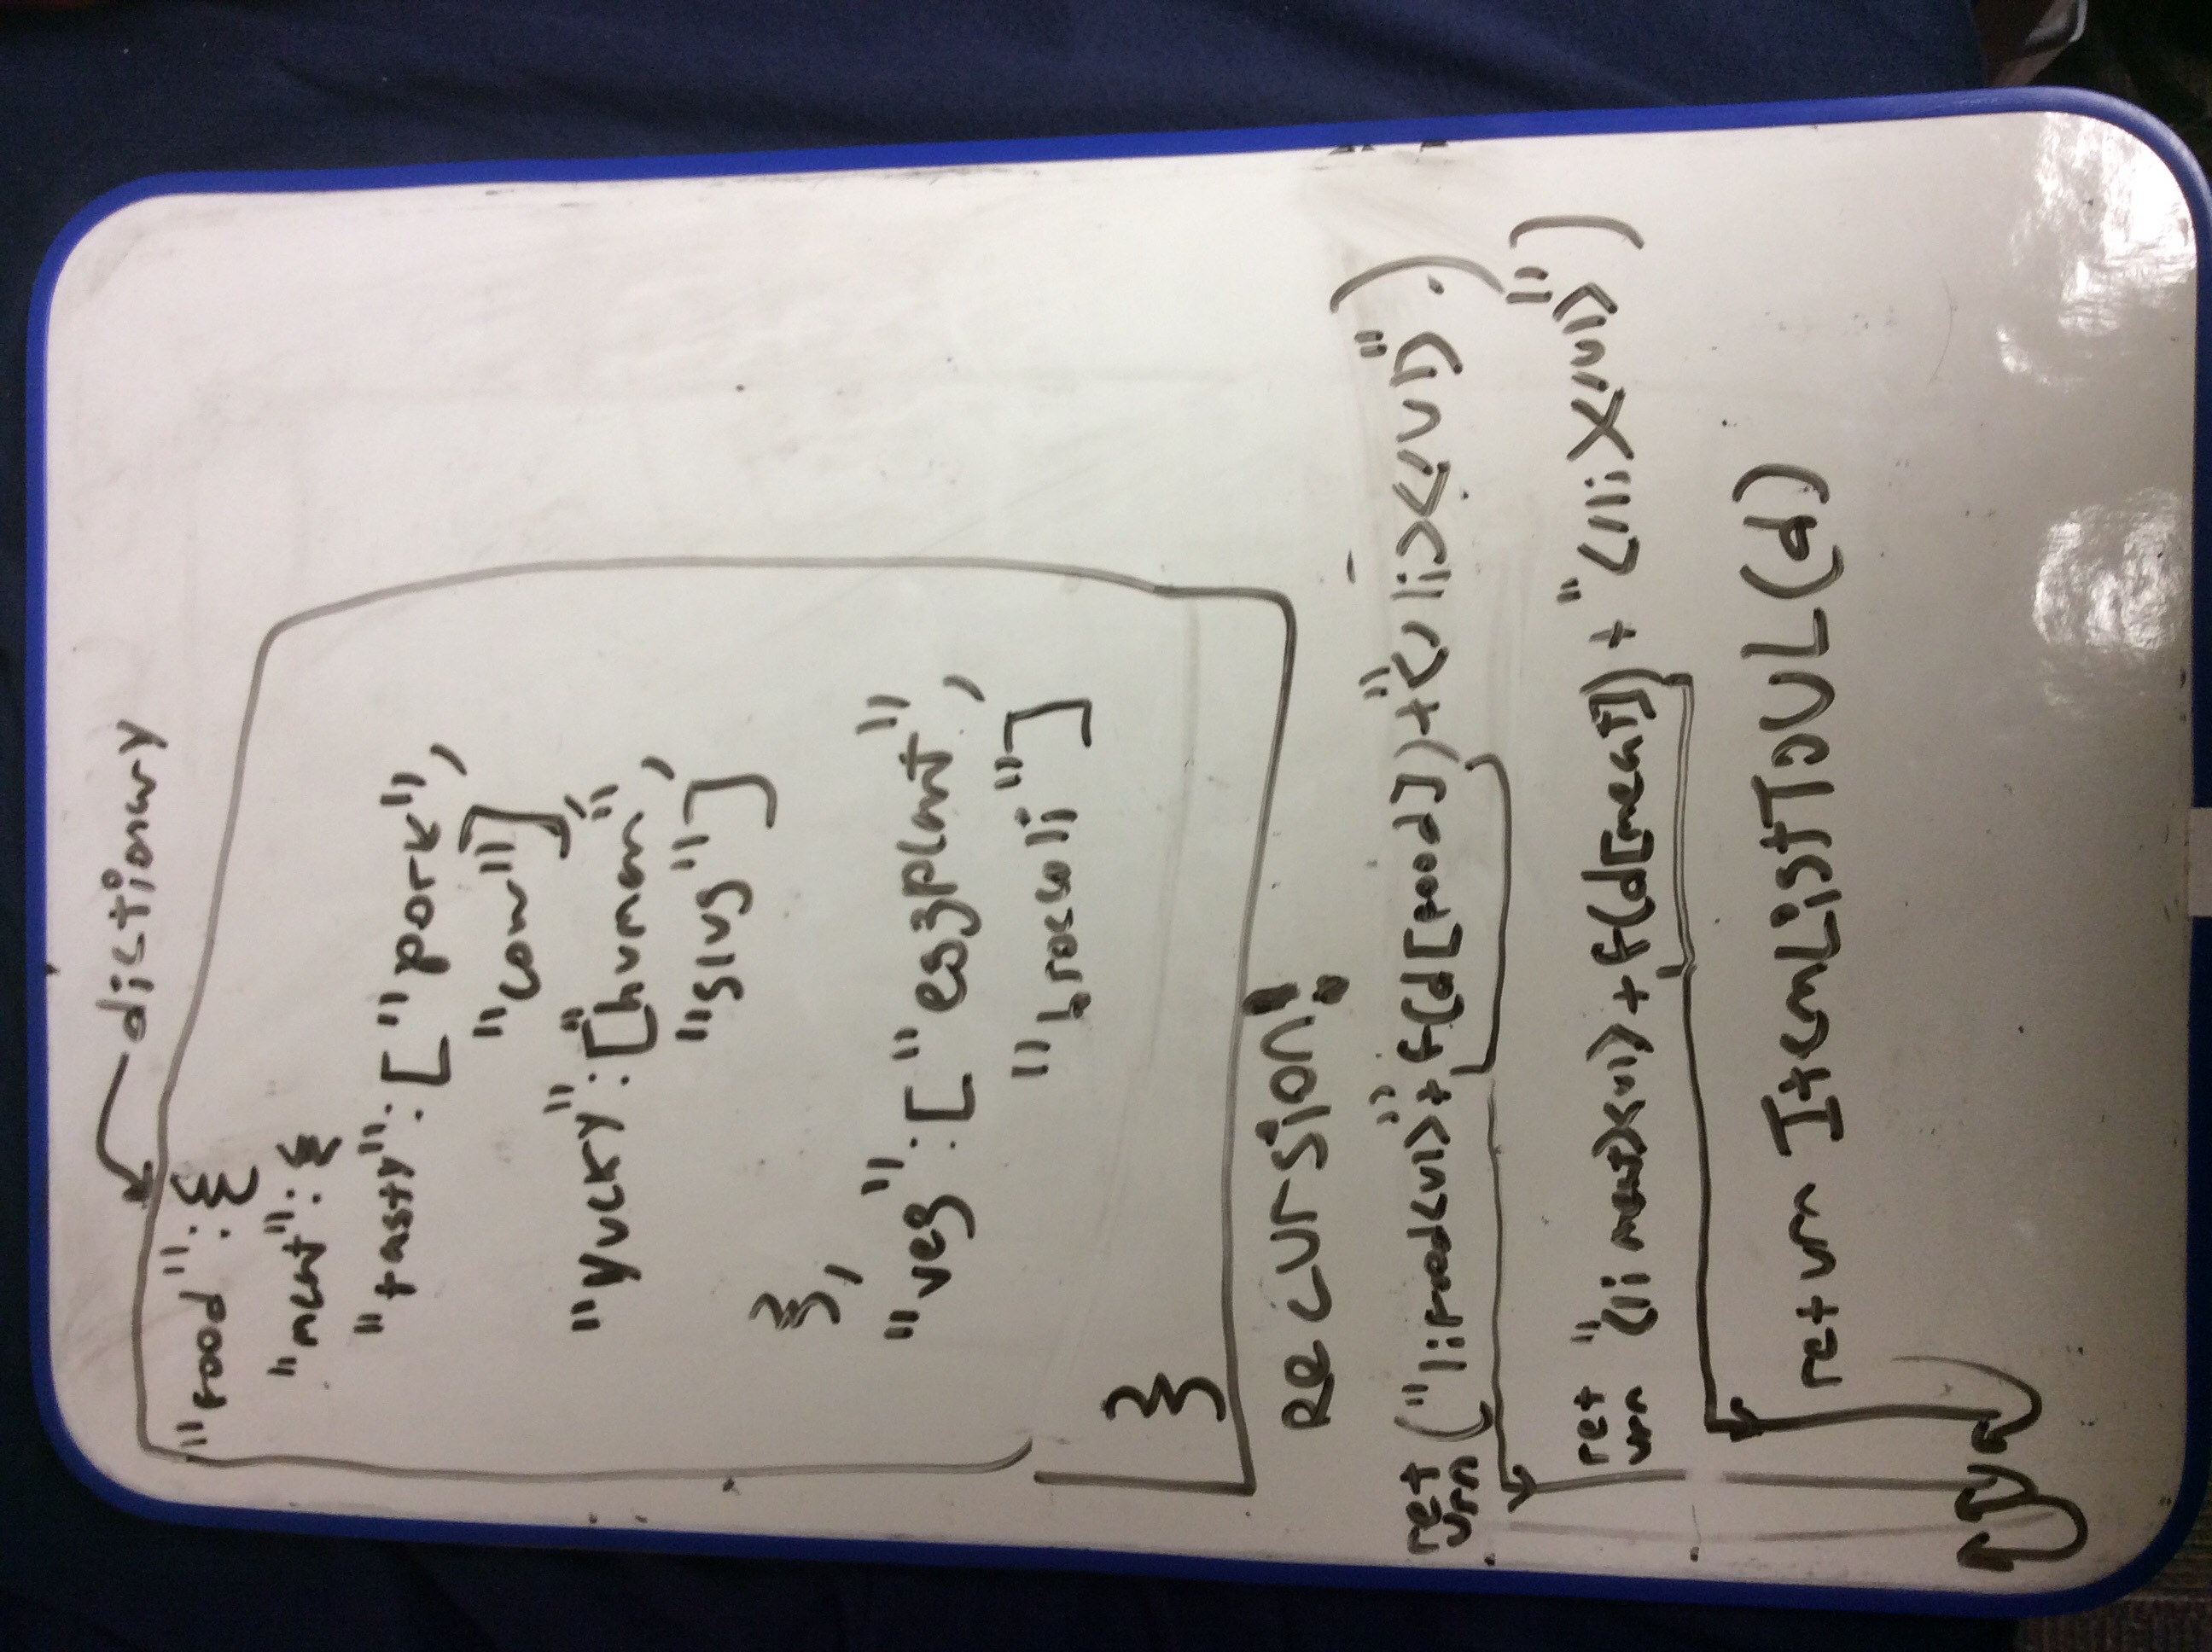 dictionary
"food":{
"meat":{
"tasty":["pork",
"cow"],
"yucky":["human",
"slug"]
},
"veg":["eggplant",
"broccoli"]
}
Recursion!
return("lifood<ul>"+f(d[food])+"</li></ul>".)
return "<li meat><ul>+f(d[meat])+"</li></ul>")
return ItemListToUL(d)